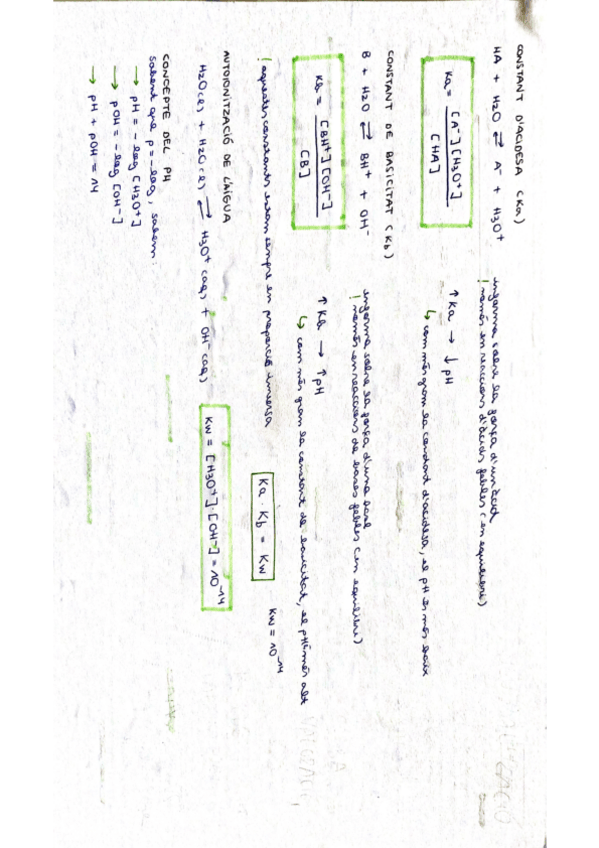 CONSTANT D'ACIDESA (Ka)
HA + H2O ⇌ A⁻ + H3O⁺
informa sobre la força d'un àcid
! només en reaccions d'àcids febles (en equilibri)
Ka = [A⁻][H3O⁺] / [HA]
↑ Ka → ↓ pH
↳ com més gran la constant d'acidesa, el pH és més baix
CONSTANT DE BASICITAT (Kb)
B + H2O ⇌ BH⁺ + OH⁻
informa sobre la força d'una base
! només en reaccions de bases febles (en equilibri)
Kb = [BH⁺][OH⁻] / [B]
↑ Kb → ↑ pH
↳ com més gran la constant de basicitat, el pH més alt
! aquestes constants estan sempre en proporció inversa
Ka · Kb = Kw
Kw = 10⁻¹⁴
AUTOIONITZACIÓ DE L'AIGUA
H2O(l) + H2O(l) ⇌ H3O⁺(aq) + OH⁻(aq)
Kw = [H3O⁺]·[OH⁻] = 10⁻¹⁴
CONCEPTE DEL PH
sabent que p = -log, sabem:
→ pH = -log [H3O⁺]
→ pOH = -log [OH⁻]
→ pH + pOH = 14